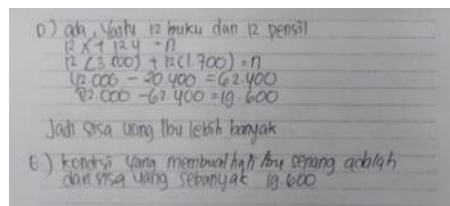 D) ada, yaitu 12 buku dan 12 pensil
12 x + 12 y = n
12 (3.500) + 12 (1.700) = n
42.000 - 20.400 = 62.400
82.000 - 62.400 = 19.600
Jadi sisa uang Ibu lebih banyak
E) kondisi yang membuat hati Ibu senang adalah
dan sisa uang sebanyak 19.600